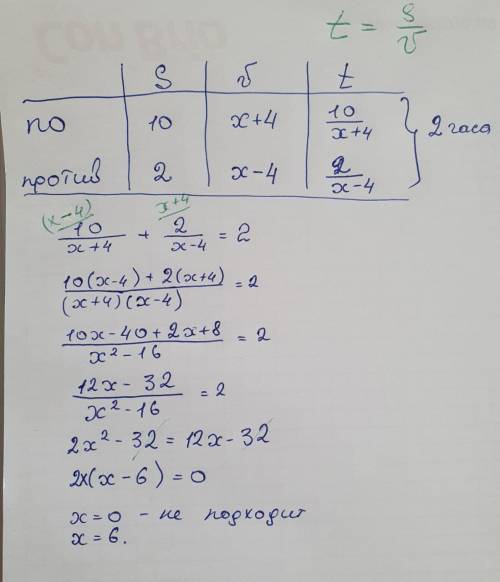 t = s/v
S v t
по 10 x+4 10/(x+4) } 2 часа
против 2 x-4 2/(x-4)
(x-4) x+4
10/(x+4) + 2/(x-4) = 2
(10(x-4)+2(x+4))/((x+4)(x-4)) = 2
(10x-40+2x+8)/(x²-16) = 2
(12x-32)/(x²-16) = 2
2x²-32=12x-32
2x(x-6)=0
x=0 - не подходит
x=6.